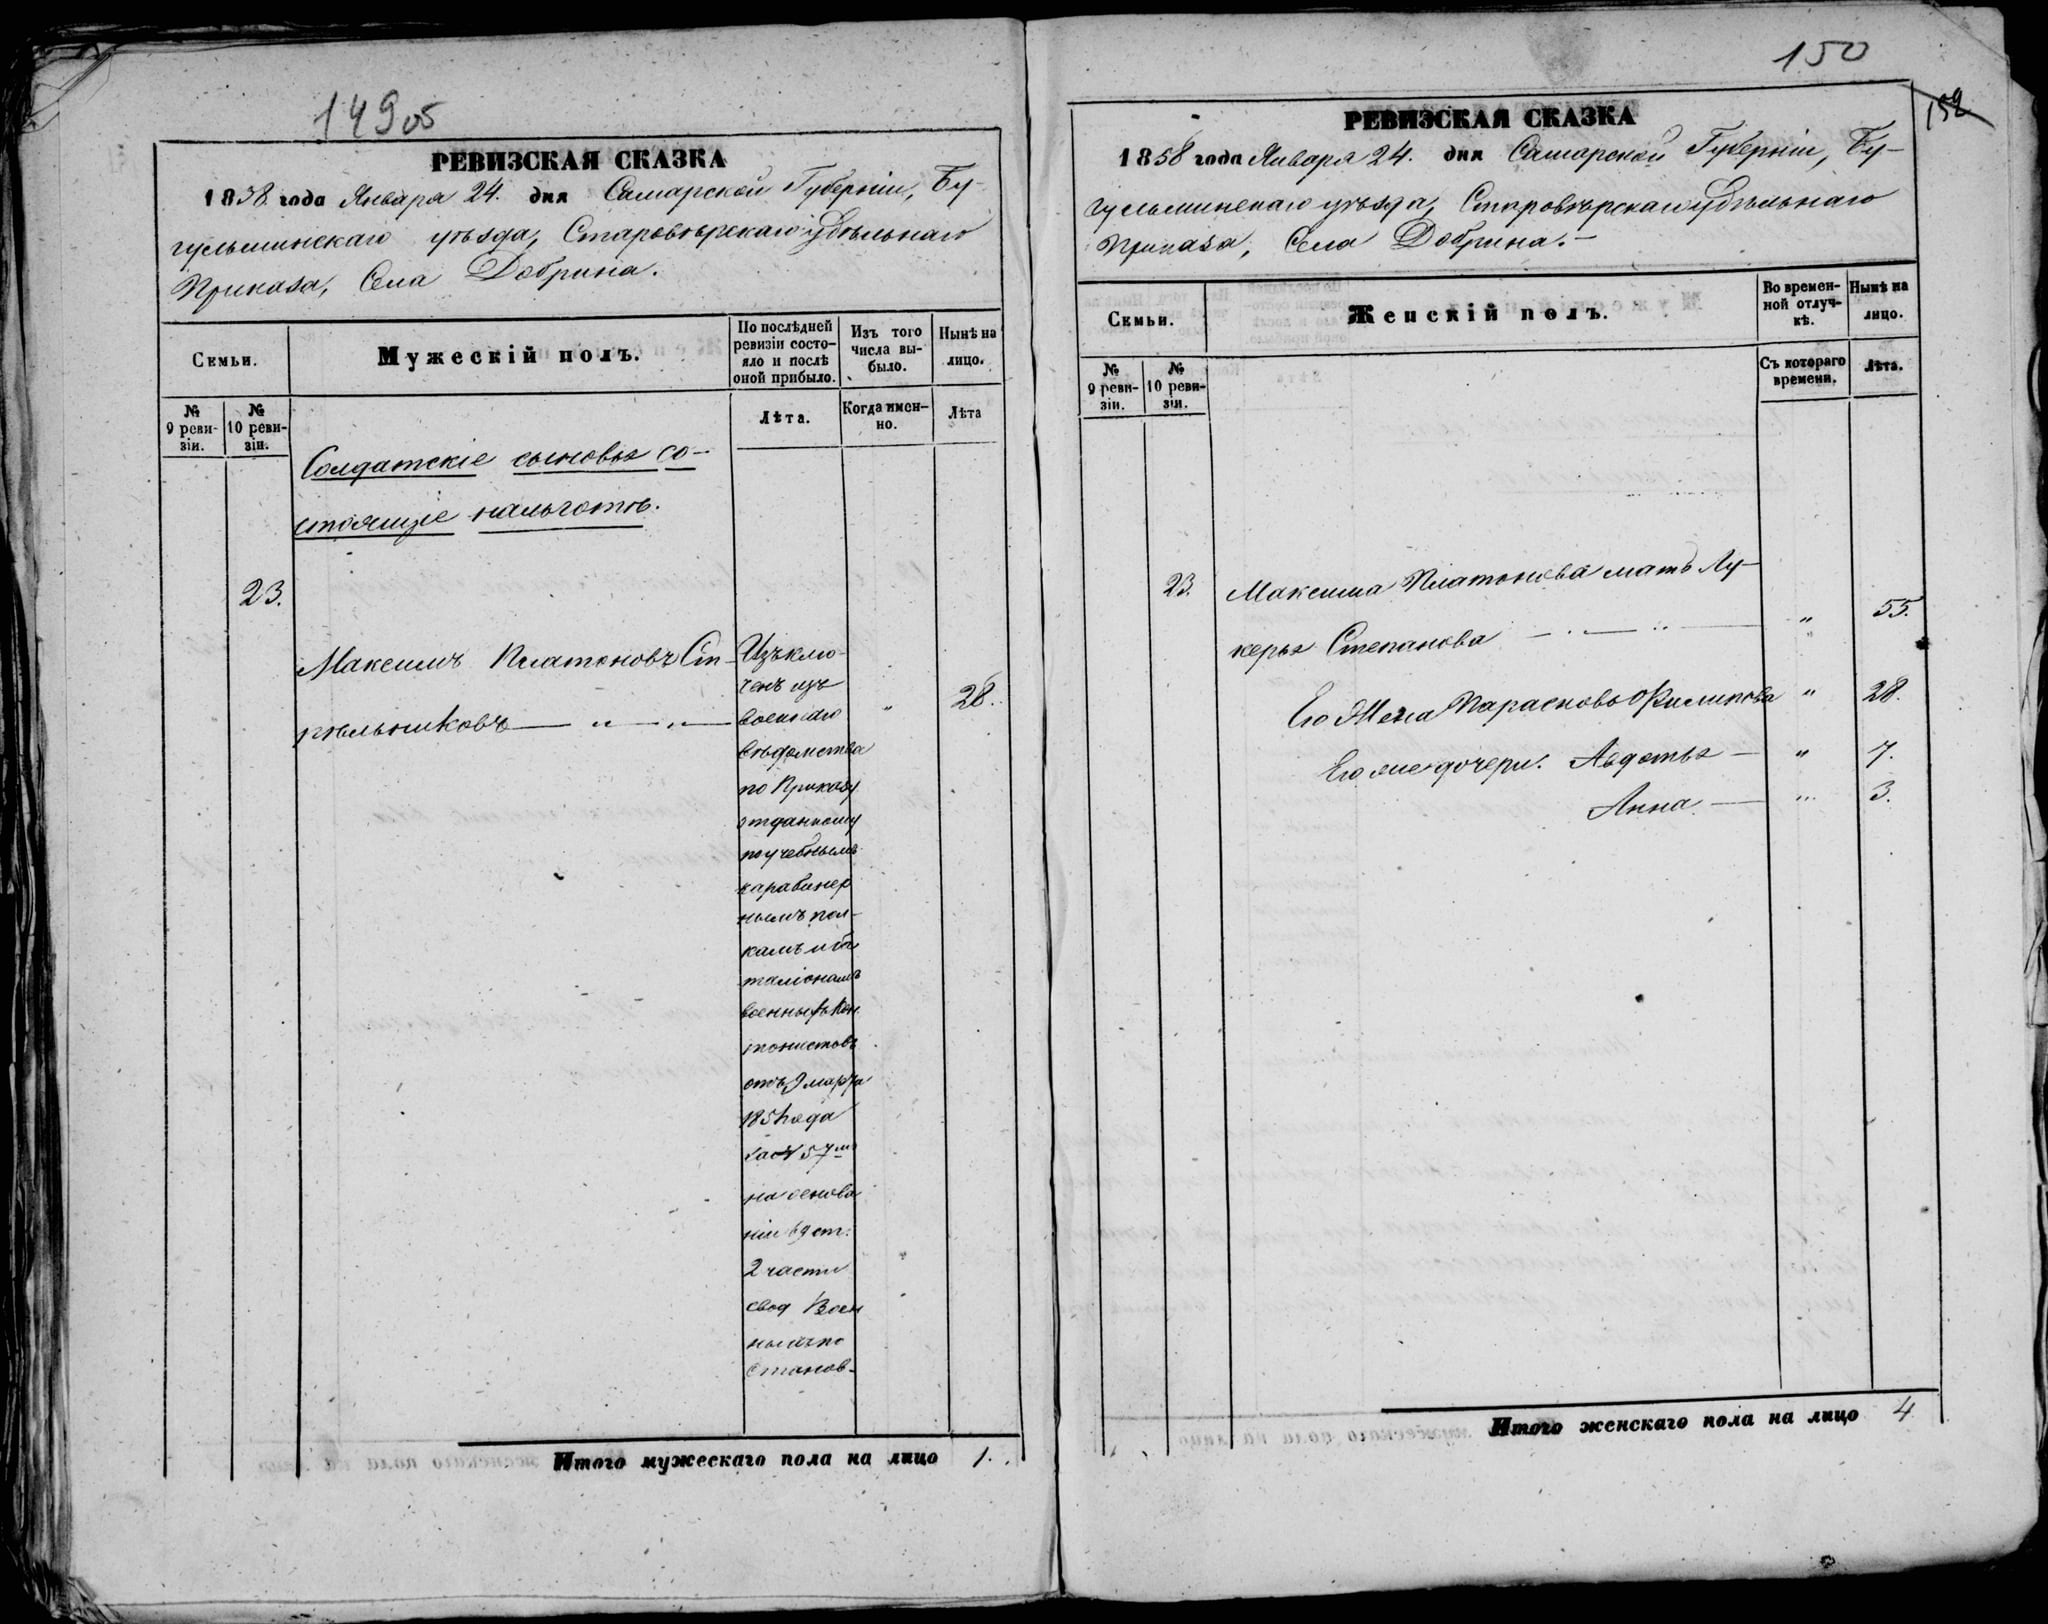 149об
РЕВИЗСКАЯ СКАЗКА
1858 года Января 24. дня Самарской Губерніи, Бу-
гульминскаго уѣзда, Старовѣрскаго Удѣльнаго
Приказа, Села Добрина.
Семьи.
Мужескій полъ.
По послѣдней ревизіи состояло и послѣ оной прибыло.
Изъ того числа выбыло.
Нынѣ на лицо.
№ 9 ревизіи.
№ 10 ревизіи.
Лѣта.
Когда именно.
Лѣта
Солдатскіе сыновья со-
стоящіе на льготѣ.
23.
Максимъ Платоновъ Ст-
рѣльниковъ — " — " —
Изъклю-
ченъ изъ
военнаго
вѣдомства
по Приказу
отданному
по учебнымъ
карабинер
нымъ пол-
камъ и ба
таліонамъ
военныхъ Кан
тонистовъ
отъ 9 марта
185 года
за № 57мъ
на основа
ніи 69 ст:
2 части
свод Воен
ныхъ по
станов-
"
28.
Итого мужескаго пола на лицо 1.
150
152
РЕВИЗСКАЯ СКАЗКА
1858 года Января 24. дня Самарской Губерніи, Бу-
гульминскаго уѣзда, Старовѣрскаго Удѣльнаго
Приказа, Села Добрина.
Семьи.
Женскій полъ.
Во временной отлучкѣ.
Нынѣ на лицо.
№ 9 ревизіи.
№ 10 ревизіи.
Съ котораго времени.
Лѣта.
23. Максима Платонова мать Лу-
керья Степанова — " — " 55.
Его Жена Парасковья Филипова " 28.
Его же дочери. Авдотья — " 7.
Анна — " 3.
Итого женскаго пола на лицо 4